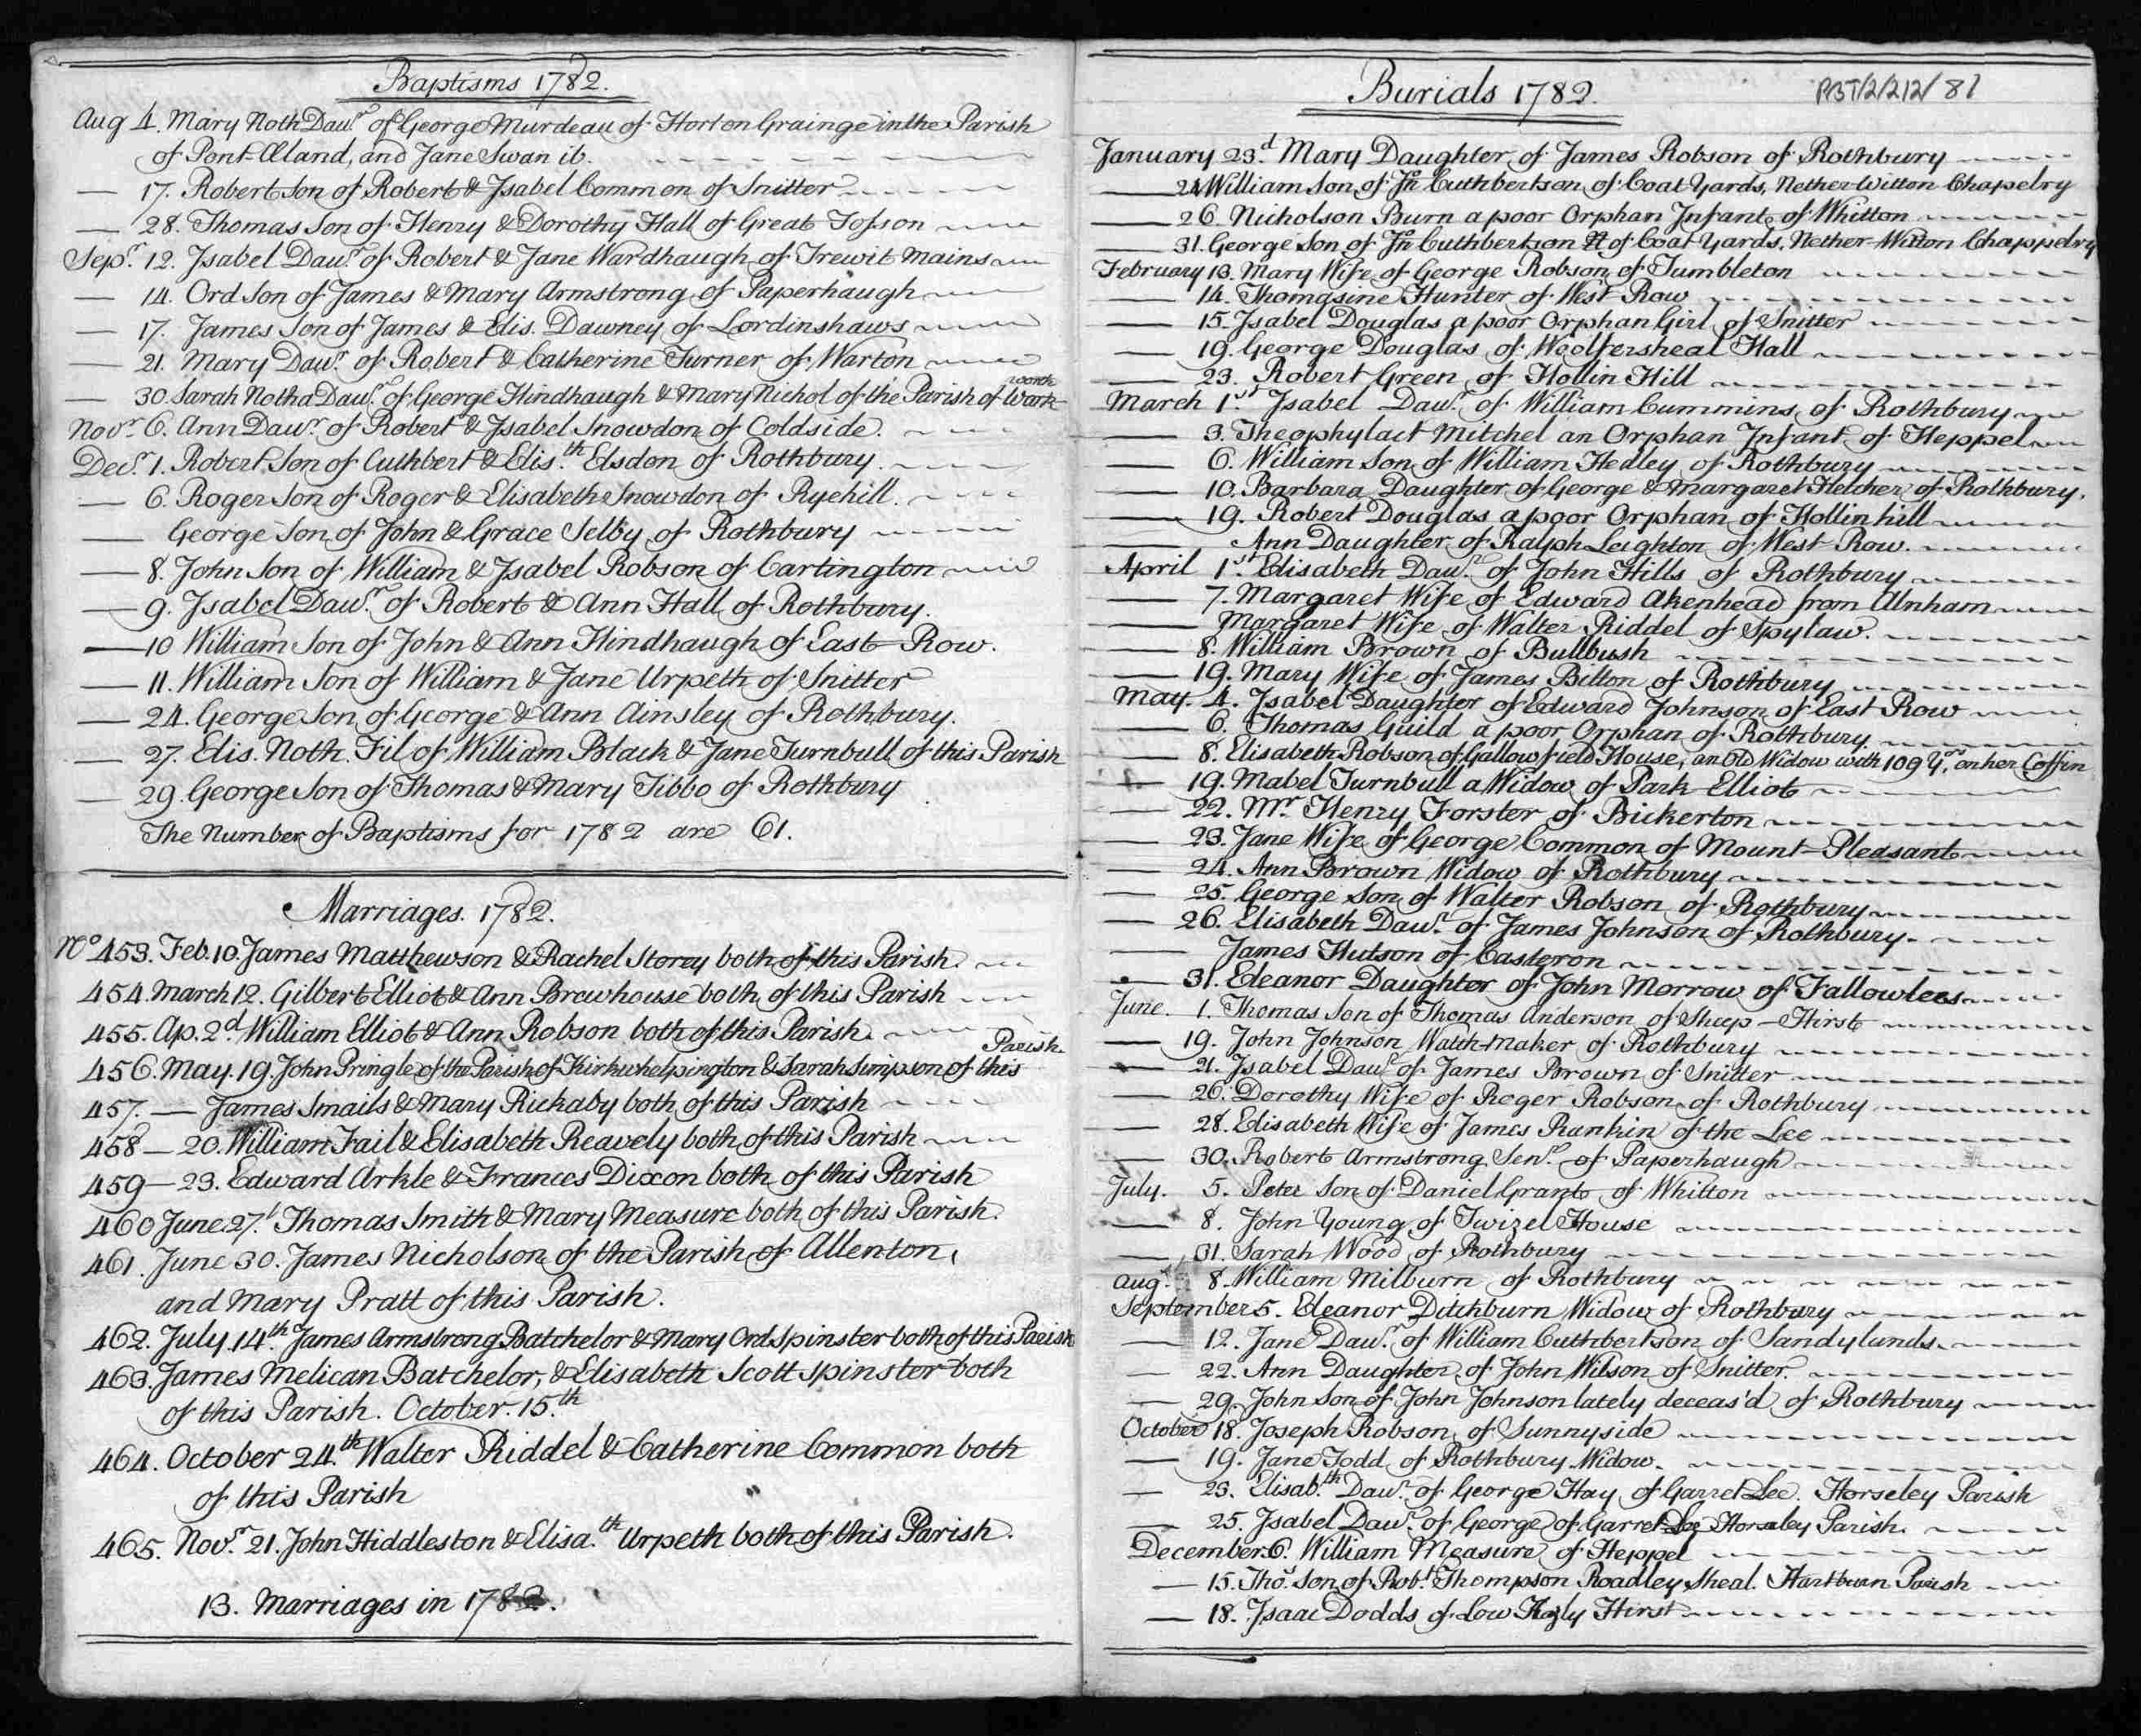 Baptisms 1782.
Aug 4. Mary Noth Daur. of George Murdeau of Horton Grainge in the Parish
of Pont-Eland, and Jane Swan ib.
— 17. Robert Son of Robert & Isabel Common of Snitter
— 28. Thomas Son of Henry & Dorothy Hall of Great Tosson
Sepr. 12. Isabel Daur. of Robert & Jane Wardhaugh of Trewit Mains
— 14. Ord Son of James & Mary Armstrong of Paperhaugh
— 17. James Son of James & Elis. Dawney of Lordinshaws
— 21. Mary Daur. of Robert & Catherine Turner of Warton
— 30. Sarah Notha Daur. of George Hindhaugh & Mary Nichol of the Parish of Wark
Novr. 6. Ann Daur. of Robert & Isabel Snowdon of Coldside.
Decr. 1. Robert Son of Cuthbert & Elis.th Elsdon of Rothbury.
— 6. Roger Son of Roger & Elisabeth Snowdon of Ryehill.
— George Son of John & Grace Selby of Rothbury
— 8. John Son of William & Isabel Robson of Cartington
— 9. Isabel Daur. of Robert & Ann Hall of Rothbury.
— 10 William Son of John & Ann Hindhaugh of East-Row.
— 11. William Son of William & Jane Urpeth of Snitter
— 24. George Son of George & Ann Ainsley of Rothbury.
— 27. Elis. Noth. Fil of William Black & Jane Turnbull of this Parish
— 29. George Son of Thomas & Mary Tibbo of Rothbury
The Number of Baptisms for 1782 are 61.
Marriages. 1782.
No 453. Feb. 10. James Matthewson & Rachel Storey both of this Parish.
454. March 12. Gilbert Elliot & Ann Brewhouse both of this Parish
455. Ap. 2d. William Elliot & Ann Robson both of this Parish.
456. May. 19. John Pringle of the Parish of Kirkwhelpington & Sarah Simpson of this Parish.
457. — James Smails & Mary Rickaby both of this Parish
458 — 20. William Fail & Elisabeth Reavely both of this Parish
459 — 23. Edward Arkle & Frances Dixon both of this Parish
460 June 27. Thomas Smith & Mary Measure both of this Parish.
461. June 30. James Nicholson of the Parish of Allenton,
and Mary Pratt of this Parish.
462. July 14th. James Armstrong Batchelor & Mary Ord Spinster both of this Parish
463. James Melican Batchelor, & Elisabeth Scott Spinster both
of this Parish. October. 15.th
464. October 24.th Walter Riddel & Catherine Common both
of this Parish
465. Novr. 21. John Hiddleston & Elisa.th Urpeth both of this Parish.
13. Marriages in 1782.
Burials 1782.
PBT/2/212/81
January 23.d Mary Daughter of James Robson of Rothbury
— 24 William Son of Jn Cuthbertson of Coat Yards, Nether-Witton Chapelry
— 26. Nicholson Burn a poor Orphan Infant of Whitton
— 31. George Son of Jn Cuthbertson of Coat Yards, Nether-Witton Chappelry
February 13. Mary Wife of George Robson of Tumbleton
— 14. Thomasine Hunter of West Row
— 15. Isabel Douglas a poor Orphan Girl of Snitter
— 19. George Douglas of Woolfersheal Hall
— 23. Robert Green of Hollin Hill
March 1.st Isabel Daur. of William Cummins of Rothbury
— 3. Theophylact Mitchel an Orphan Infant of Heppel
— 6. William Son of William Hedley of Rothbury
— 10. Barbara Daughter of George & Margaret Fletcher of Rothbury.
— 19. Robert Douglas a poor Orphan of Hollin hill
— Ann Daughter of Ralph Leighton of West-Row.
April 1.st Elisabeth Daur. of John Hills of Rothbury
— 7. Margaret Wife of Edward Akenhead from Alnham
— Margaret Wife of Walter Riddel of Spylaw.
— 8. William Brown of Bullbush
— 19. Mary Wife of James Bilton of Rothbury
May. 4. Isabel Daughter of Edward Johnson of East Row
— 6. Thomas Guild a poor Orphan of Rothbury
— 8. Elisabeth Robson of Gallowfield House, an Old Widow with 109 Yrs. on her Coffin
— 19. Mabel Turnbull a Widow of Park-Elliot
— 22. Mr. Henry Forster of Bickerton
— 23. Jane Wife of George Common of Mount-Pleasant
— 24. Ann Brown Widow of Rothbury
— 25. George Son of Walter Robson of Rothbury
— 26. Elisabeth Daur. of James Johnson of Rothbury.
— James Hutson of Casteron
— 31. Eleanor Daughter of John Morrow of Fallowlees
June. 1. Thomas Son of Thomas Anderson of Sheep-Hirst
— 19. John Johnson Watch-maker of Rothbury
— 21. Isabel Daur. of James Brown of Snitter
— 26. Dorothy Wife of Roger Robson of Rothbury
— 28. Elisabeth Wife of James Rankin of the Lee
— 30. Robert Armstrong Senr. of Paperhaugh
July. 5. Peter Son of Daniel Grant of Whitton
— 8. John Young of Twizel House
— 31. Sarah Wood of Rothbury
Aug. 8. William Milburn of Rothbury
September 5. Eleanor Ditchburn Widow of Rothbury
— 12. Jane Daur. of William Cuthbertson of Sandylands.
— 22. Ann Daughter of John Wilson of Snitter.
— 29. John Son of John Johnson lately deceas'd of Rothbury
October 18. Joseph Robson of Sunnyside
— 19. Jane Todd of Rothbury Widow.
— 23. Elisab.th Daur. of George Hay of Garret Lee. Horseley Parish
— 25. Isabel Daur. of George of Garret-Lee Horseley Parish.
December 6. William Measure of Heppel
— 15. Thos. Son of Robt. Thompson Roadley Sheal. Hartburn Parish
— 18. Isaac Dodds of Low Hirst